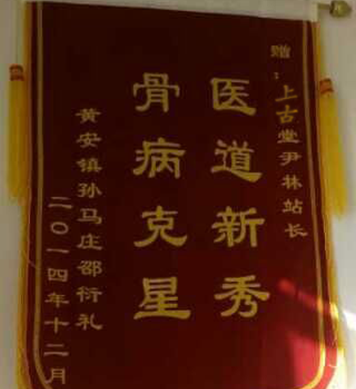 赠：上古堂尹林站长
医道新秀
骨病克星
黄安镇孙马庄邵衍礼
二〇一四年十二月